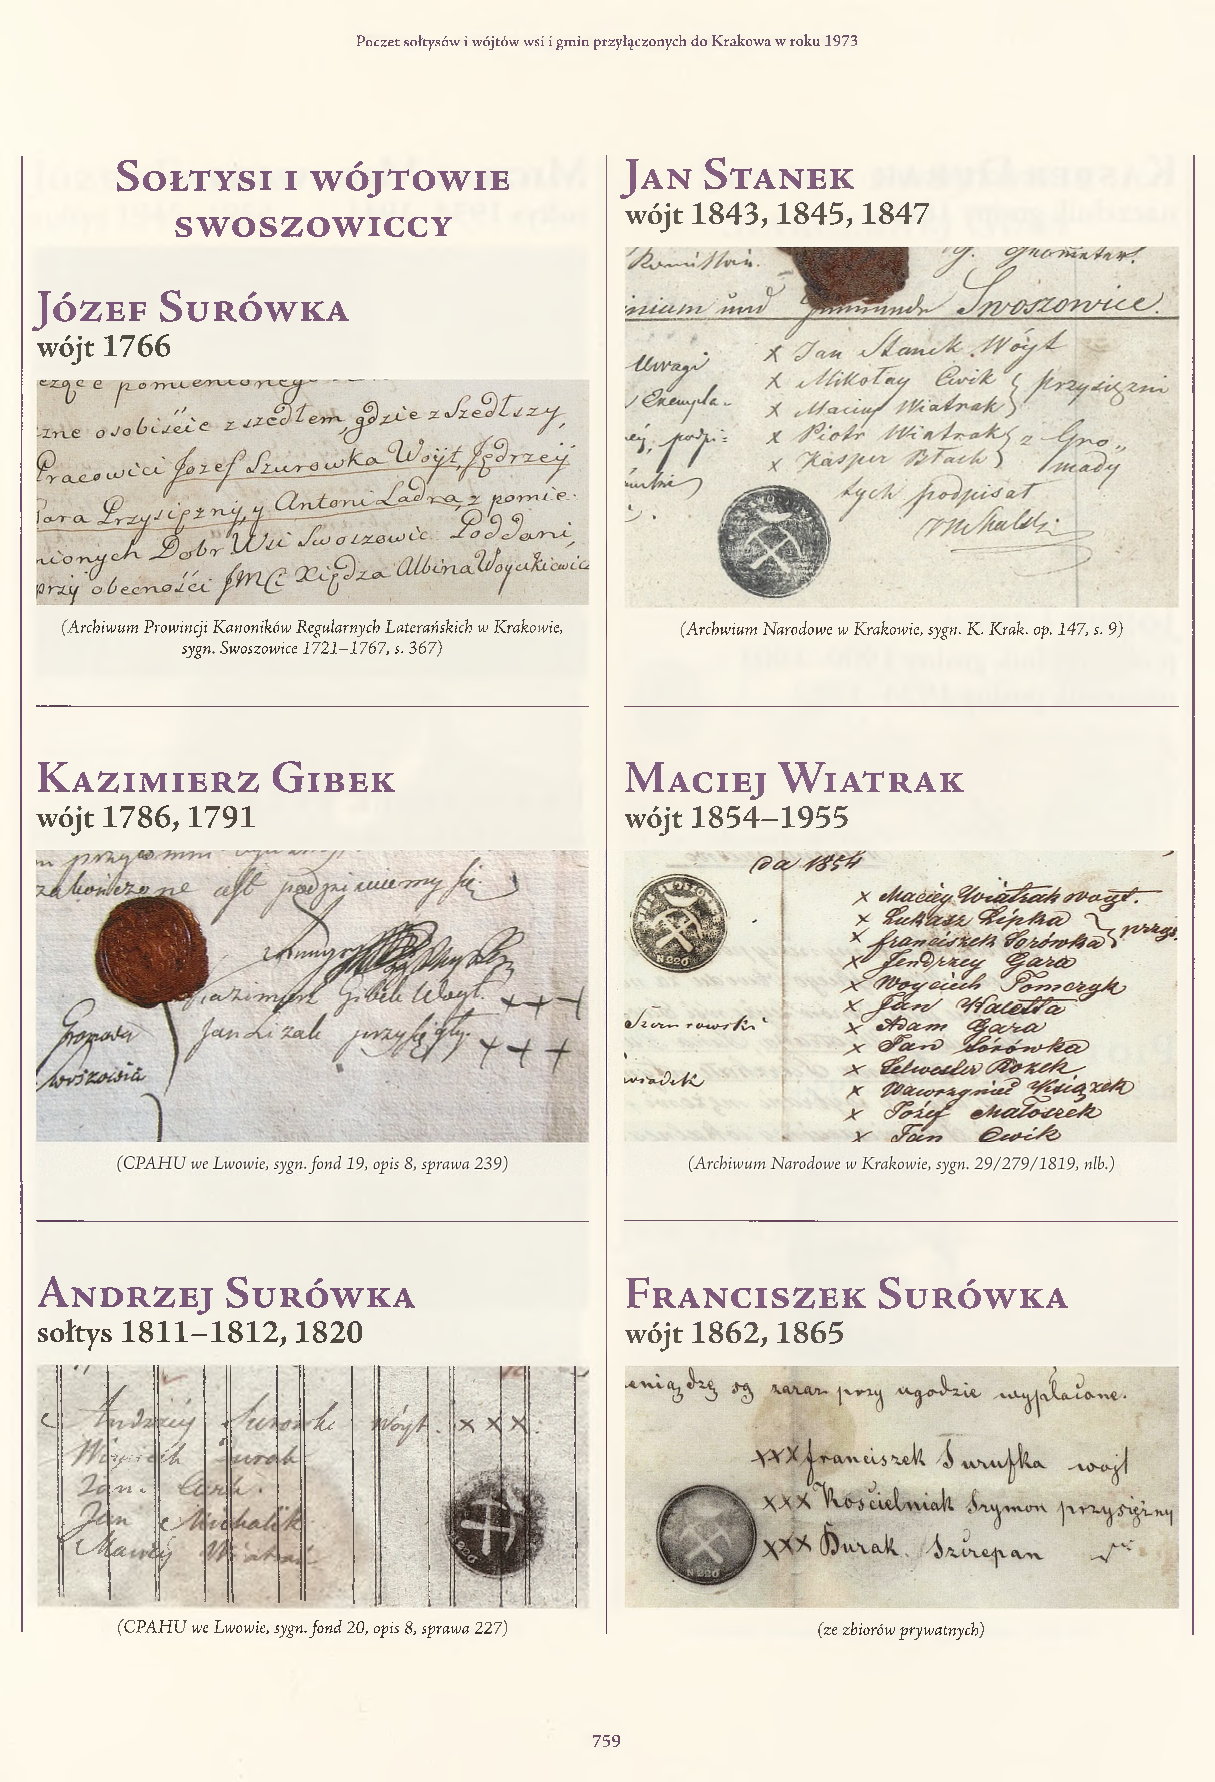 Poczet sołtysów i wójtów wsi i gmin przyłączonych do Krakowa w roku 1973
Sołtysi i wójtowie
swoszowiccy
Józef Surówka
wójt 1766
czące pomienionego
zne osobiście zszedłem, gdzie zszedłszy,
Pracowici Jozef Szurowka Woyt, Jędrzey
Gara Przysięzny, y Antoni Ladra, z pomie
nionych Dobr Wsi Swoszowic Poddani,
przy obecności JMCi Xiędza Albina Woycikiewicz
(Archiwum Prowincji Kanoników Regularnych Laterańskich w Krakowie,
sygn. Swoszowice 1721–1767, s. 367)
Kazimierz Gibek
wójt 1786, 1791
zakończone podpisuiemy się
Kazimierz Gibek Woyt. + + +
Jan Lizak przysięgły. + + +
Gromada
(CPAHU we Lwowie, sygn. fond 19, opis 8, sprawa 239)
Andrzej Surówka
sołtys 1811–1812, 1820
Andrzey Surowka Wóyt. x x x.
Woyciech Durak
Jan Cwik.
Jan Michalik
Maciey Wiatrak
220
(CPAHU we Lwowie, sygn. fond 20, opis 8, sprawa 227)
Jan Stanek
wójt 1843, 1845, 1847
Geometer.
inium und Gemeinde Swoszowice.
Uwagi x Jan Stanek Wóyt
Exempla- x Mikołay Cwik przysiężni
x Maciey Wiatrak
podpi= x Piotr Wiatrak z Gro„
x Kasper Błach mady
tych podpisał
(Archwium Narodowe w Krakowie, sygn. K. Krak. op. 147, s. 9)
Maciej Wiatrak
wójt 1854–1955
da 1854
x Maciey Wiatrak woyt.
x Łukasz Lipka przys.
x franciszek Sorówka
x Jendrzey Gara
x Woyciech Tomczyk
x Jan Waletta
x Adam Gara
x Jan Sórówka
x Selwester Rozek
x Wawrzyniec Xsiązek
x Józef Małoszek
x Jan Cwik
N 220
(Archiwum Narodowe w Krakowie, sygn. 29/279/1819, nlb.)
Franciszek Surówka
wójt 1862, 1865
eniądze są zaraz przy ugodzie wypłacone.
xxx franciszek Surufka wojt
xxx Koscielniak Szymon przysiężny
xxx Durak Szczepan
N 220
(ze zbiorów prywatnych)
759